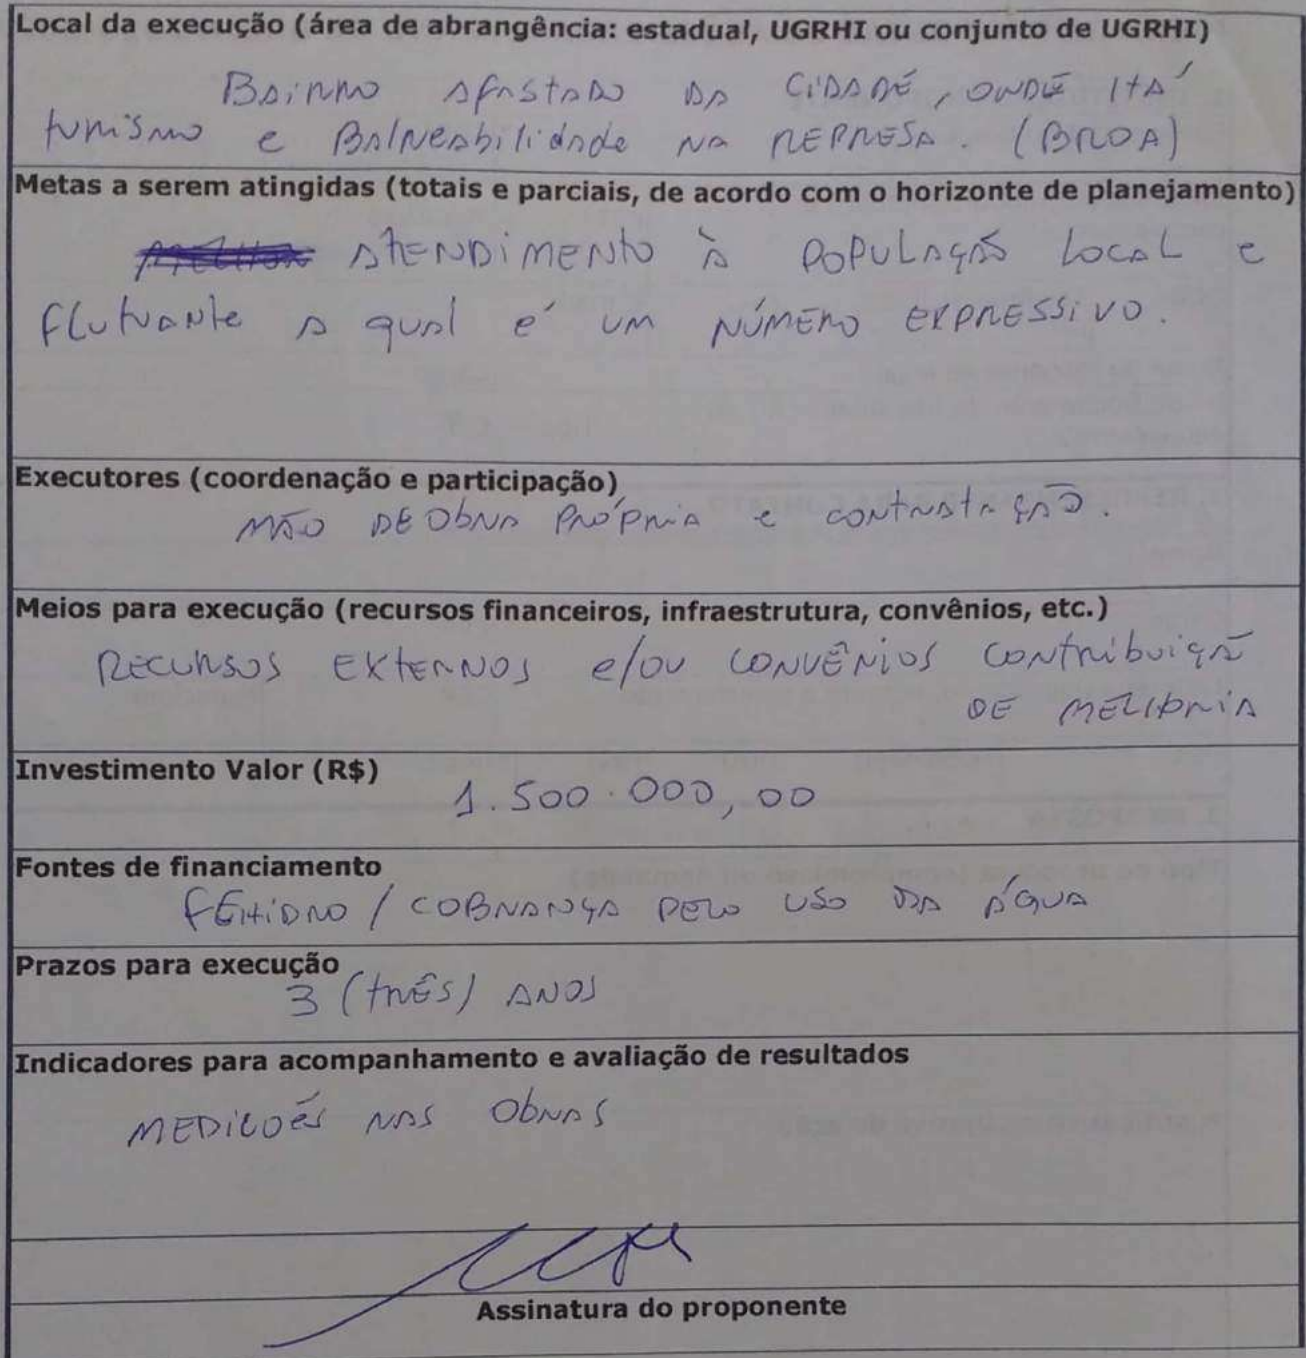 Local da execução (área de abrangência: estadual, UGRHI ou conjunto de UGRHI)
BAIRRO AFASTADO DA CIDADE, ONDE HÁ
turismo e BAlNeAbilidade NA REPRESA. (BROA)
Metas a serem atingidas (totais e parciais, de acordo com o horizonte de planejamento)
AtENDimENto À POPULAÇÃO LOCAL e
FlutuANte A quAl é UM NÚMERO EXPRESSIVO.
Executores (coordenação e participação)
MÃO DE ObRA PRÓPRIA e CONtRAtAÇÃO.
Meios para execução (recursos financeiros, infraestrutura, convênios, etc.)
RECURSOS EXTERNOS e/ou CONVÊNIOS CONtRibuiçÃ
DE MELHORIA
Investimento Valor (R$)
1.500.000,00
Fontes de financiamento
FEHIDRO / COBRANÇA PELO USO DA ÁGUA
Prazos para execução
3 (tRÊS) ANOS
Indicadores para acompanhamento e avaliação de resultados
MEDIÇÕES NAS ObRAS
Assinatura do proponente